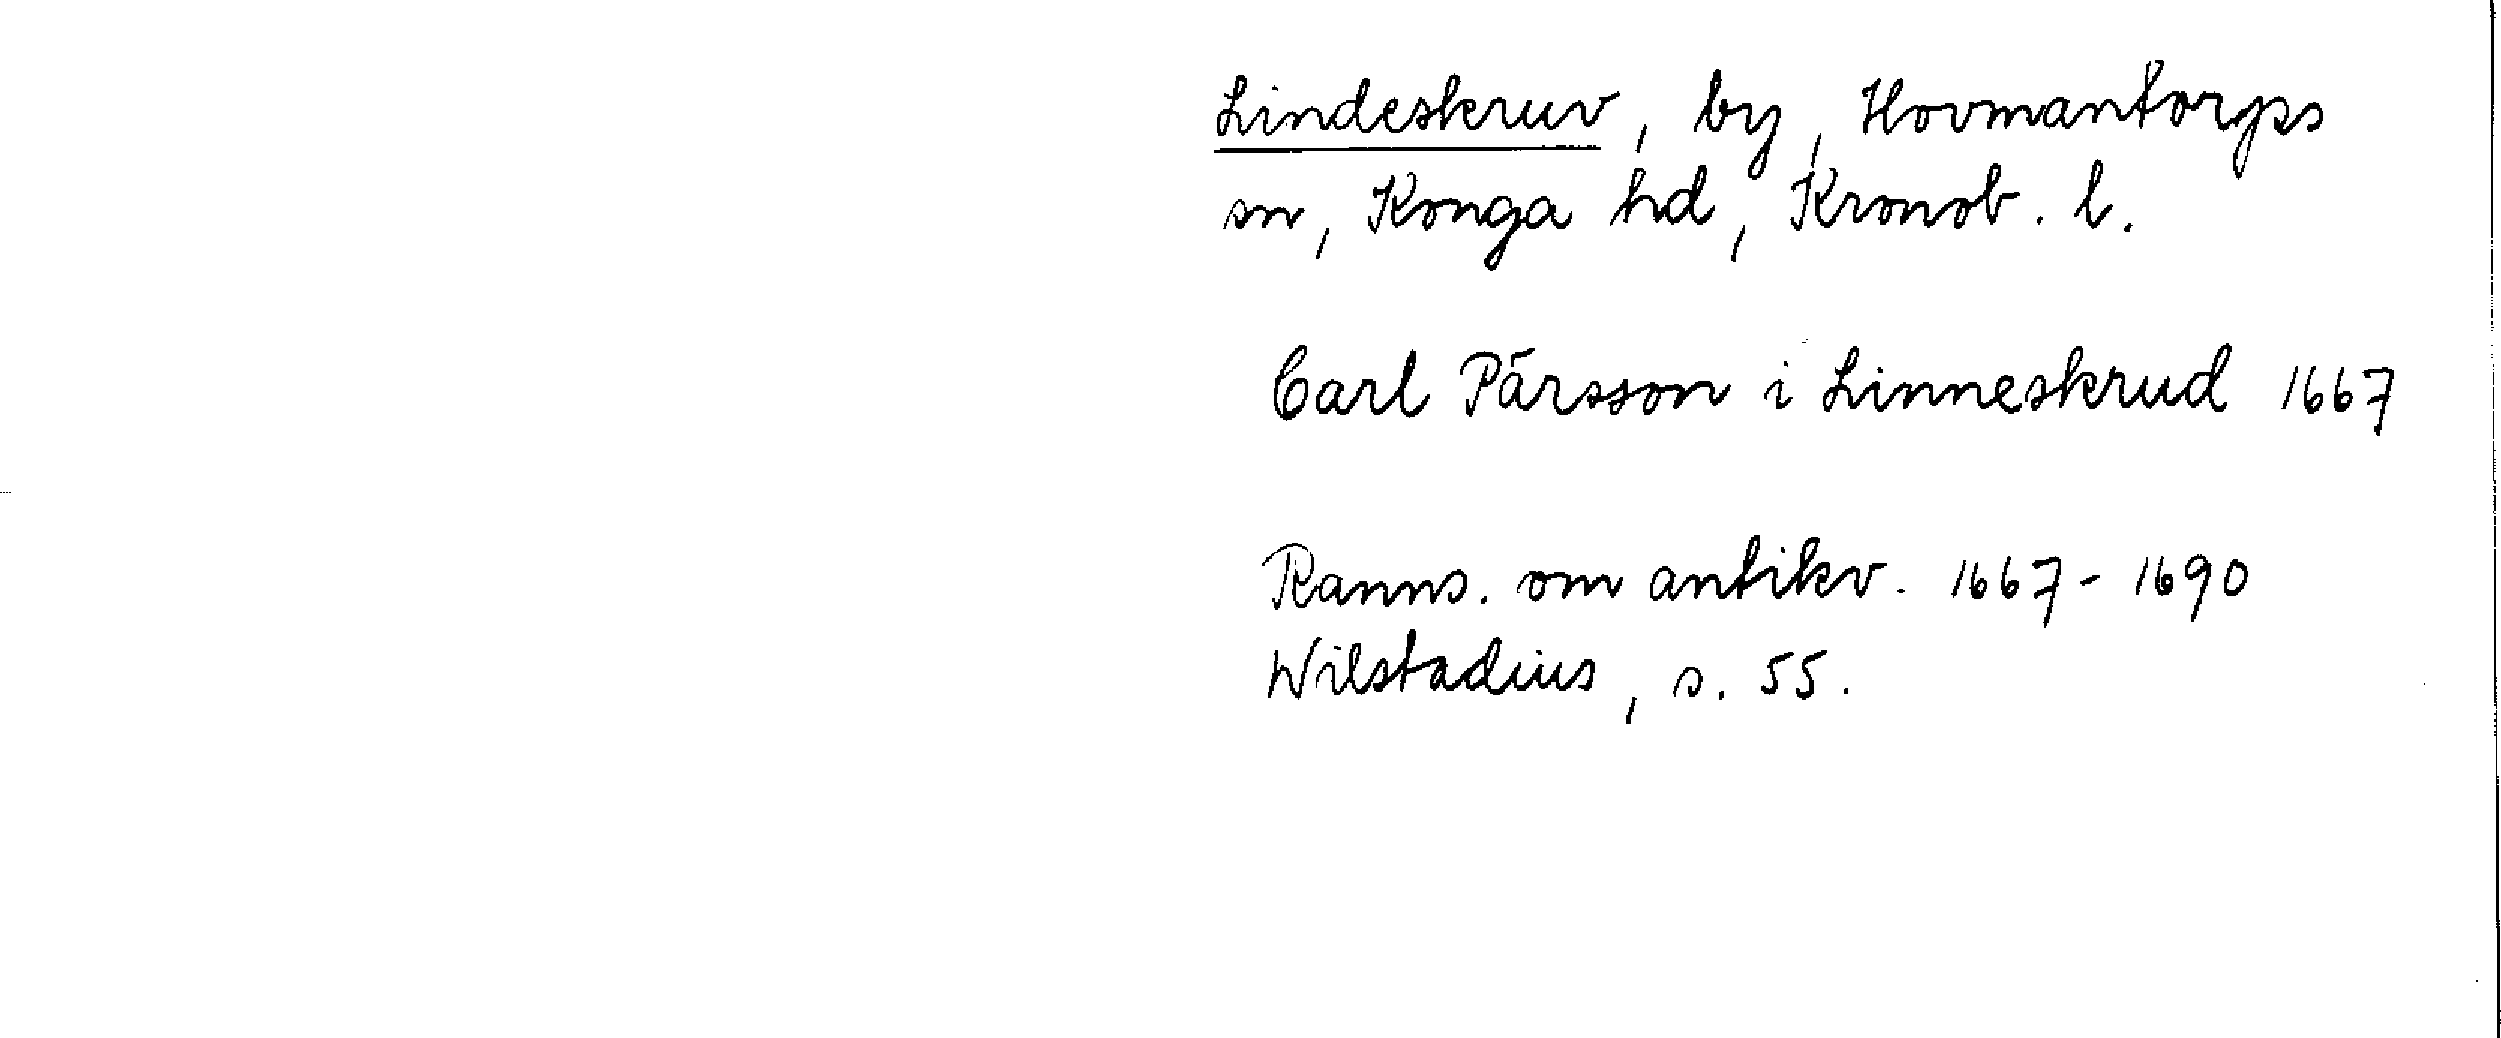 Lindeskruv, by, Hovmantorps
sn, Konga hd, Kronob. l.
Carl Pärsson i Linneskrud 1667
Ranns. om antikv. 1667-1690
Wilstadius, s. 55.